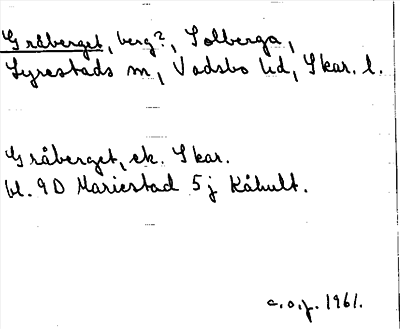 Gråberget, berg?, Solberga,
Lyrestads sn, Vadsbo hd, Skar. l.
Gråberget, ek. Skar.
bl. 9D Mariestad 5j Kåhult.
c.o.p. 1961.